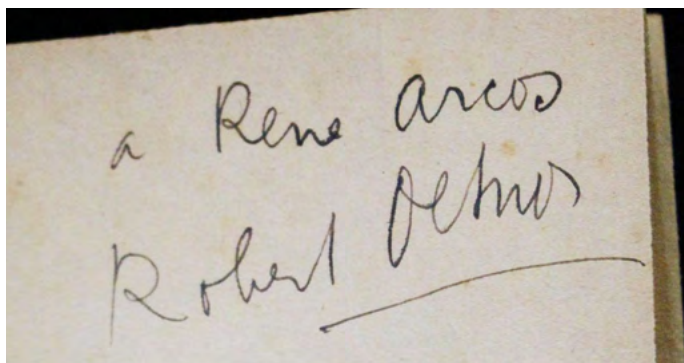 a Rene Arcos
Robert Desnos